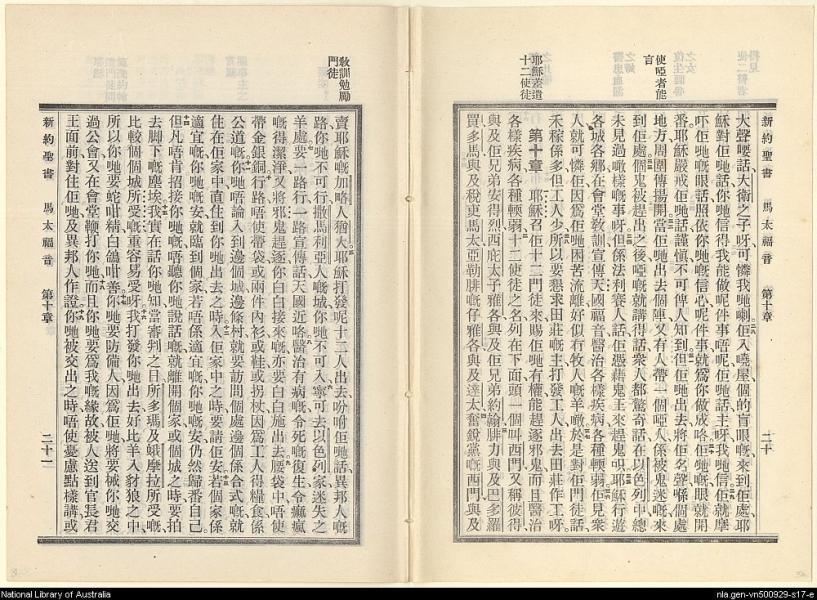 新約聖書 馬太福音 第十章 二十
大聲嘍話大衛之子呀可憐我哋喇佢入嘵屋個的盲眼嘅來到佢處耶
穌對佢哋話你哋信得我能做呢件事唔呢佢哋話主呀我哋信佢就摩
吓佢哋嘅眼話照依你哋嘅信心呢件事就爲你做成咯佢哋嘅眼就開
番耶穌嚴戒佢哋話謹愼不可俾人知到但佢哋出去將佢名聲喺個處
地方周圍傳揚開當佢哋出去個陣又有人帶一個啞人係被鬼迷嘅來
到佢處個鬼被趕出之後啞嘅就講得話衆人都驚奇話在以色列中總
未見過噉樣嘅事呀但係法利賽人話佢憑藉鬼王來趕鬼呾耶穌行遊
各城各鄉在會堂敎訓宣傳天國福音醫治各樣疾病各種輭弱佢見衆
人就可憐佢因爲佢哋困苦流離好似冇牧人嘅羊噉於是對佢門徒話
禾稼係多但工人少所以要懇求田莊嘅主打發工人出去田莊作工呀
第十章 耶穌召佢十二門徒來賜佢哋有權能趕逐邪鬼而且醫治
各樣疾病各種輭弱十二使徒之名列在下面頭一個叫西門又稱彼得
與及佢兄弟安得烈西庇太子雅各與及佢兄弟約翰腓力與及巴多羅
買多馬與及稅吏馬太亞勒腓嘅仔雅各與及達太奮銳黨嘅西門與及
使啞者能
言
耶穌差遣
十二使徒
新約聖書 馬太福音 第十章 二十一
敎訓勉勵
門徒
賣耶穌嘅加略人猶大耶穌打發呢十二人出去吩咐佢哋話異邦人嘅
路你哋不可行撒馬利亞人嘅城你哋不可入寧可去以色列家迷失之
羊處要一路行一路宣傳話天國近咯醫治有病嘅令死嘅復生令痲瘋
嘅得潔淨又將邪鬼趕逐你白白接來嘅亦要白白施出去腰袋中唔使
帶金銀銅行路唔使帶袋或兩件內衫或鞋或拐杖因爲工人得糧食係
公道嘅你哋唔論入到邊個城邊條村就要訪問個處邊個係合式嘅就
住在佢家中直住到你哋出去之時入佢家中之時要請佢安若個家係
適宜嘅你哋嘅安就臨到個家若唔係適宜嘅你哋嘅安仍然歸番自己
但凡唔肯招接你哋嘅唔聽你哋說話嘅就離開個家或個城之時要拍
去脚下嘅塵埃我實在話你哋知當審判之日所多瑪及蛾摩拉所受嘅
比較個個城所受嘅重容易受呀我打發你哋出去好比羊入豺狼之中
所以你哋要蛇咁精白鴿咁善你哋要防備人因爲佢哋將要械你哋交
過公會又在會堂鞭打你哋而且你哋要爲我嘅緣故被人送到官長君
王面前對住佢哋及異邦人作證你哋被交出之時唔使憂慮點樣講或
National Library of Australia
nla.gen-vn500929-s17-e